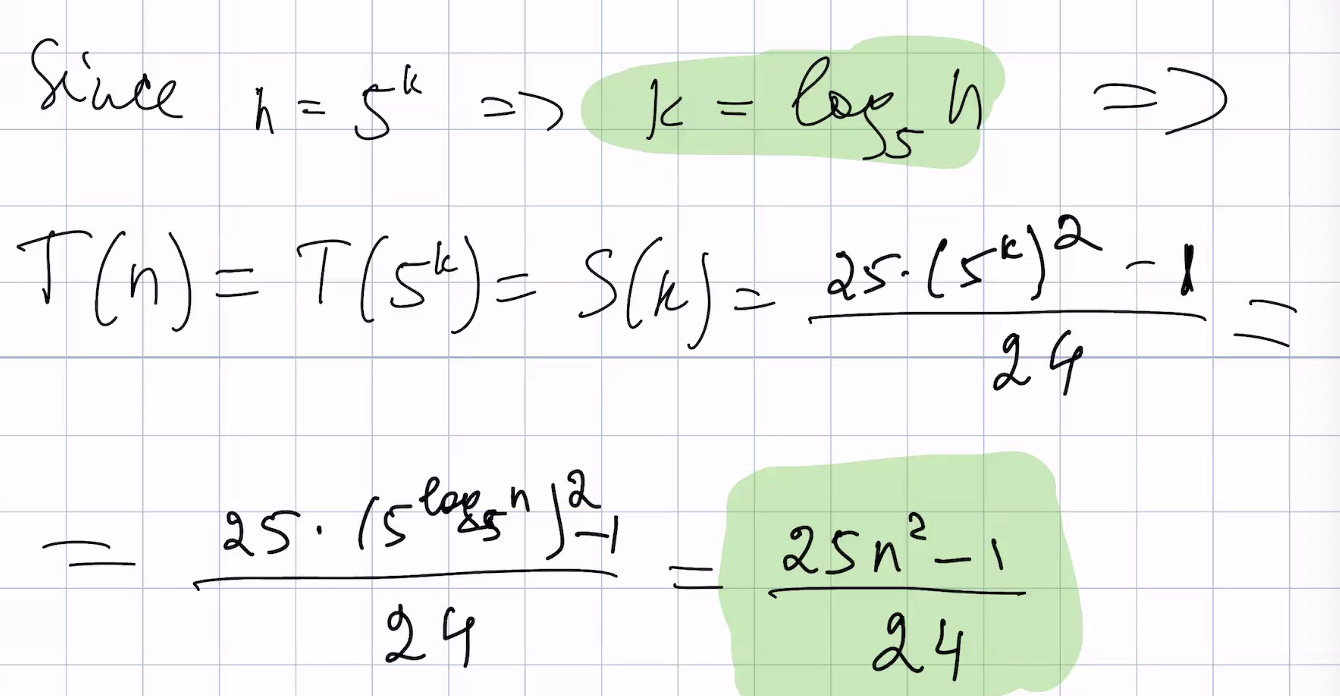 Since n = 5^k => k = log_5 n =>
T(n) = T(5^k) = S(k) = (25·(5^k)^2 - 1)/24 =
= (25·(5^(log_5 n))^2 - 1)/24 = (25n^2 - 1)/24